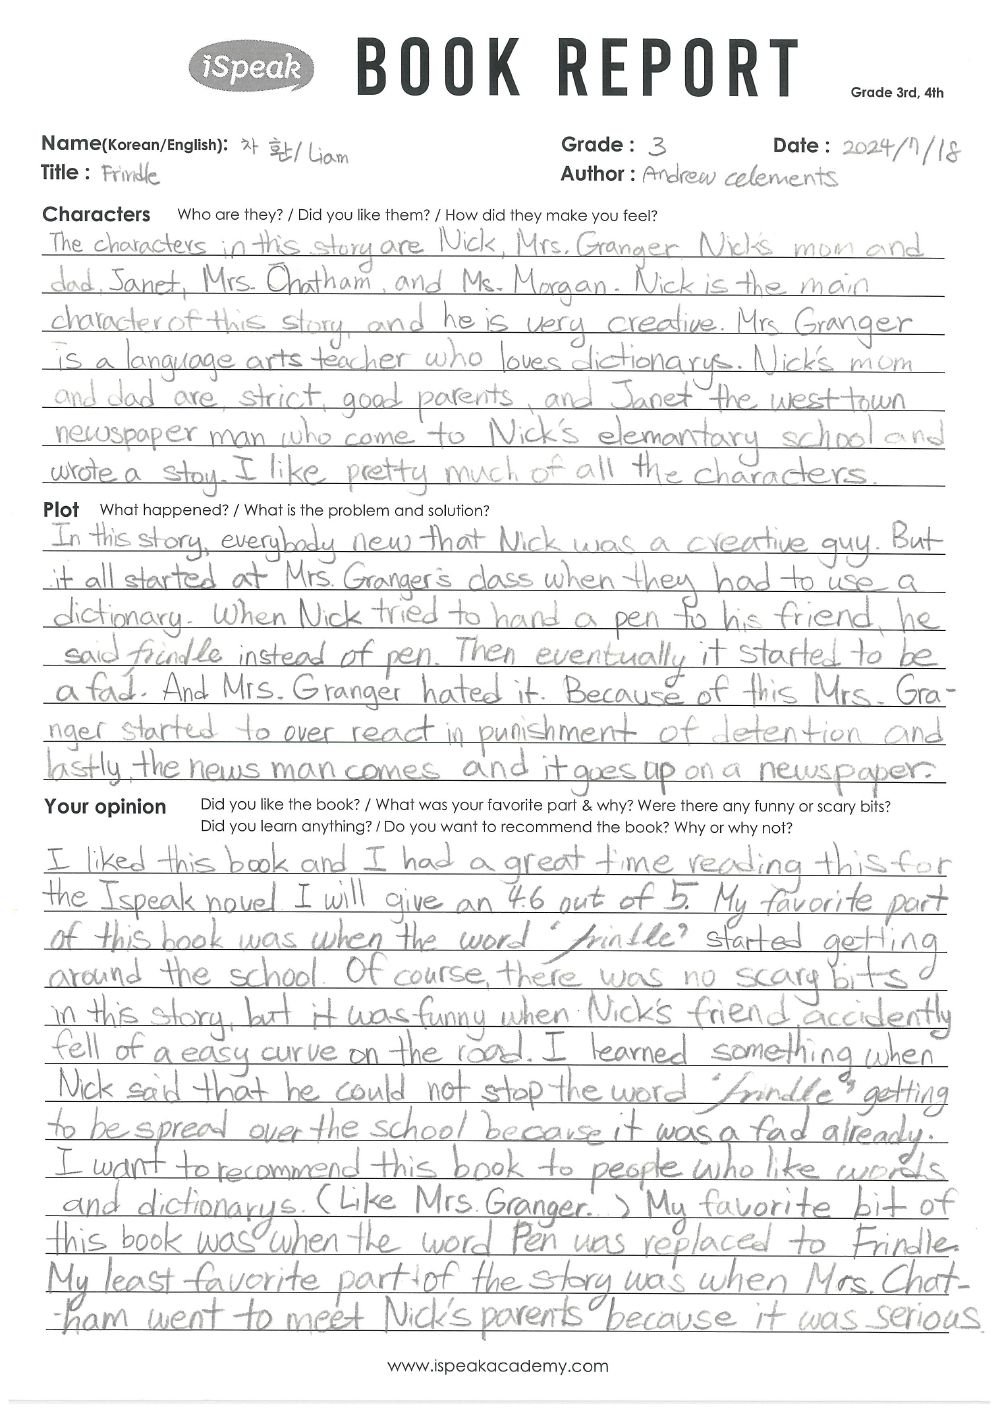 iSpeak
BOOK REPORT
Grade 3rd, 4th
Name(Korean/English): 자 환/ Liam
Grade : 3
Date : 2024/7/18
Title : Frindle
Author : Andrew celements
Characters Who are they? / Did you like them? / How did they make you feel?
The characters in this story are Nick, Mrs. Granger Nick's mom and
dad, Janet, Mrs. Chatham, and Ms. Morgan. Nick is the main
character of this story, and he is very creative. Mrs Granger
is a language arts teacher who loves dictionarys. Nick's mom
and dad are strict, good parents, and Janet the west town
newspaper man who come to Nick's elemantary school and
wrote a stoy. I like pretty much of all the characters.
Plot What happened? / What is the problem and solution?
In this story, everybody new that Nick was a creative guy. But
it all started at Mrs. Granger's class when they had to use a
dictionary. When Nick tried to hand a pen to his friend, he
said frindle instead of pen. Then eventually it started to be
a fad. And Mrs. Granger hated it. Because of this Mrs. Gra-
nger started to over react in punishment of detention and
lastly, the news man comes and it goes up on a newspaper.
Your opinion Did you like the book? / What was your favorite part & why? Were there any funny or scary bits?
Did you learn anything? / Do you want to recommend the book? Why or why not?
I liked this book and I had a great time reading this for
the Ispeak novel I will give an 4.6 out of 5. My favorite part
of this book was when the word 'frindle' started getting
around the school. Of course, there was no scary bits
in this story, but it was funny when Nick's friend accidently
fell of a easy curve on the road. I learned something when
Nick said that he could not stop the word "frindle" getting
to be spread over the school because it was a fad already.
I want to recommend this book to people who like words
and dictionarys. (Like Mrs. Granger.) My favorite bit of
this book was when the word Pen was replaced to Frindle.
My least favorite part of the story was when Mrs. Chat-
-ham went to meet Nick's parents because it was serious
www.ispeakacademy.com